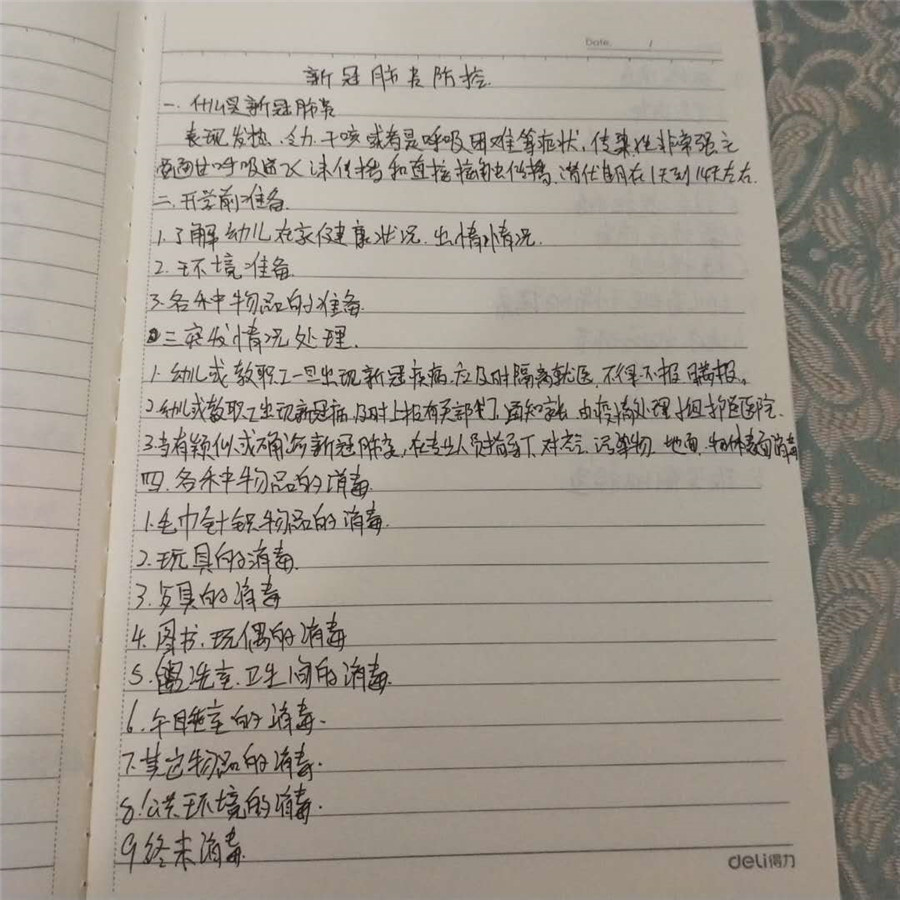 Date. /
新冠肺炎防控.
一.什么是新冠肺炎
表现发热.乏力.干咳或者是呼吸困难等症状,传染性非常强主
要通过呼吸道飞沫传播和直接接触传播.潜伏期在1天到14天左右.
二.开学前准备.
1.了解幼儿在家健康状况.出情情况.
2.环境准备.
3.各种物品的准备.
三突发情况处理.
1.幼儿或教职工一旦出现新冠疾病.应及时隔离就医.不得不报瞒报。
2.幼儿或教职工出现新冠病.及时上报有关部门.通知家长.由疫情处理组护送医院.
3.当有疑似或确诊新冠肺炎,在专业人员指导下.对污染物.地面.物体表面消毒
四.各种物品的消毒.
1.毛巾针织物品的消毒.
2.玩具的消毒.
3.家具的消毒
4.图书.玩偶的消毒
5.盥洗室.卫生间的消毒.
6.午睡室的消毒.
7.其它物品的消毒.
8.公共环境的消毒.
9终末消毒.
deli得力